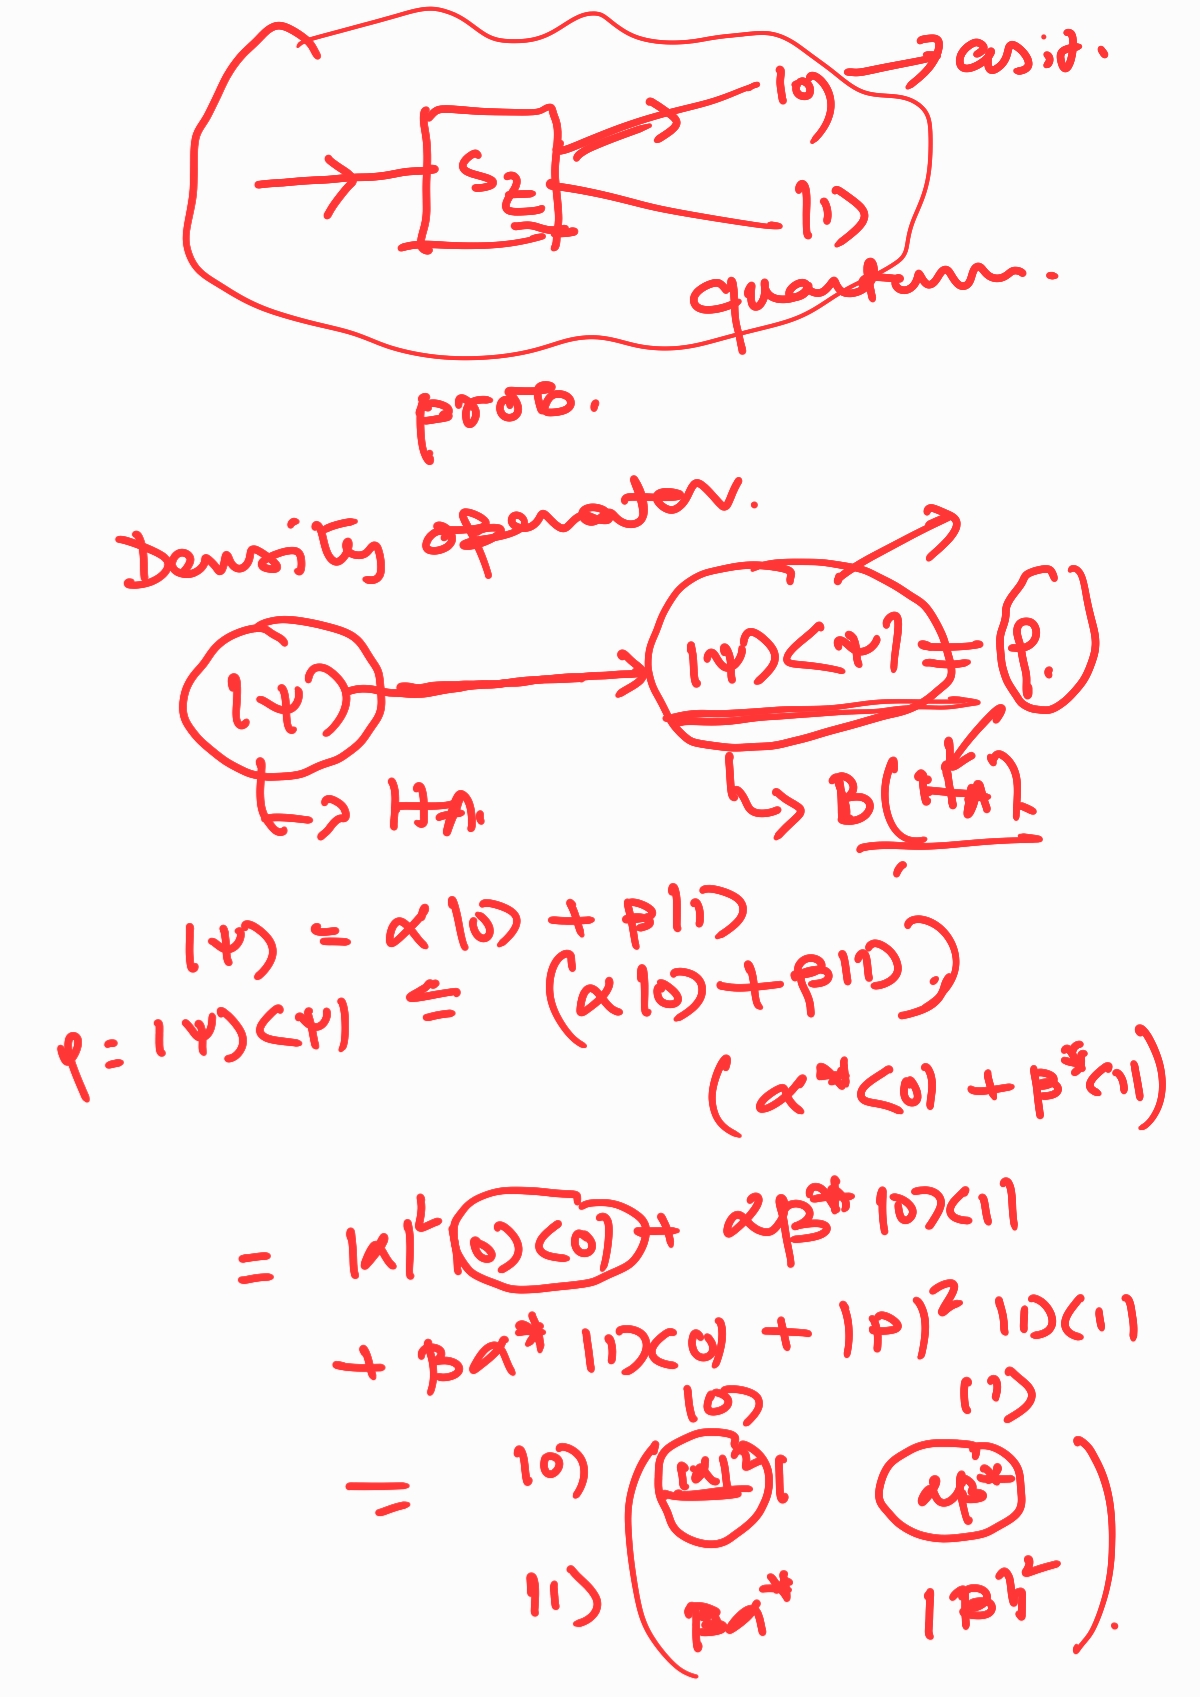 |0⟩ → asit.
S_z
|1⟩
quantum.
prob.
Density operator.
|ψ⟩ → |ψ⟩⟨ψ| = ρ.
↳ H_A. ↳ B(H_A).
|ψ⟩ = α|0⟩ + β|1⟩
ρ = |ψ⟩⟨ψ| = (α|0⟩ + β|1⟩).
(α*⟨0| + β*⟨1|)
= |α|² |0⟩⟨0| + αβ* |0⟩⟨1|
+ βα* |1⟩⟨0| + |β|² |1⟩⟨1|
|0⟩ |1⟩
= |0⟩ ( |α|² αβ*
|1⟩ βα* |β|² ).